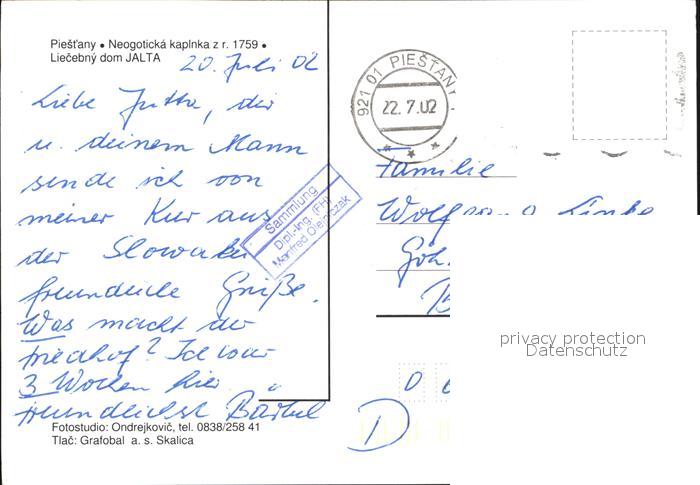 Piešťany • Neogotická kaplnka z r. 1759 •
Liečebný dom JALTA
20. Juli 02
Liebe Jutta, dir
u. deinem Mann
sende ich von
meiner Kur aus
der Slowakei
freundliche Grüße.
Was macht der
Friedhof? Ich war
3 Wochen hier
Freundlichst Bärbel
Fotostudio: Ondrejkovič, tel. 0838/258 41
Tlač: Grafobal a. s. Skalica
Sammlung
Dipl.-Ing. (FH)
Manfred
921 01 PIEŠŤANY
22.7.02
Familie
Wolfgang Linke
D
privacy protection
Datenschutz